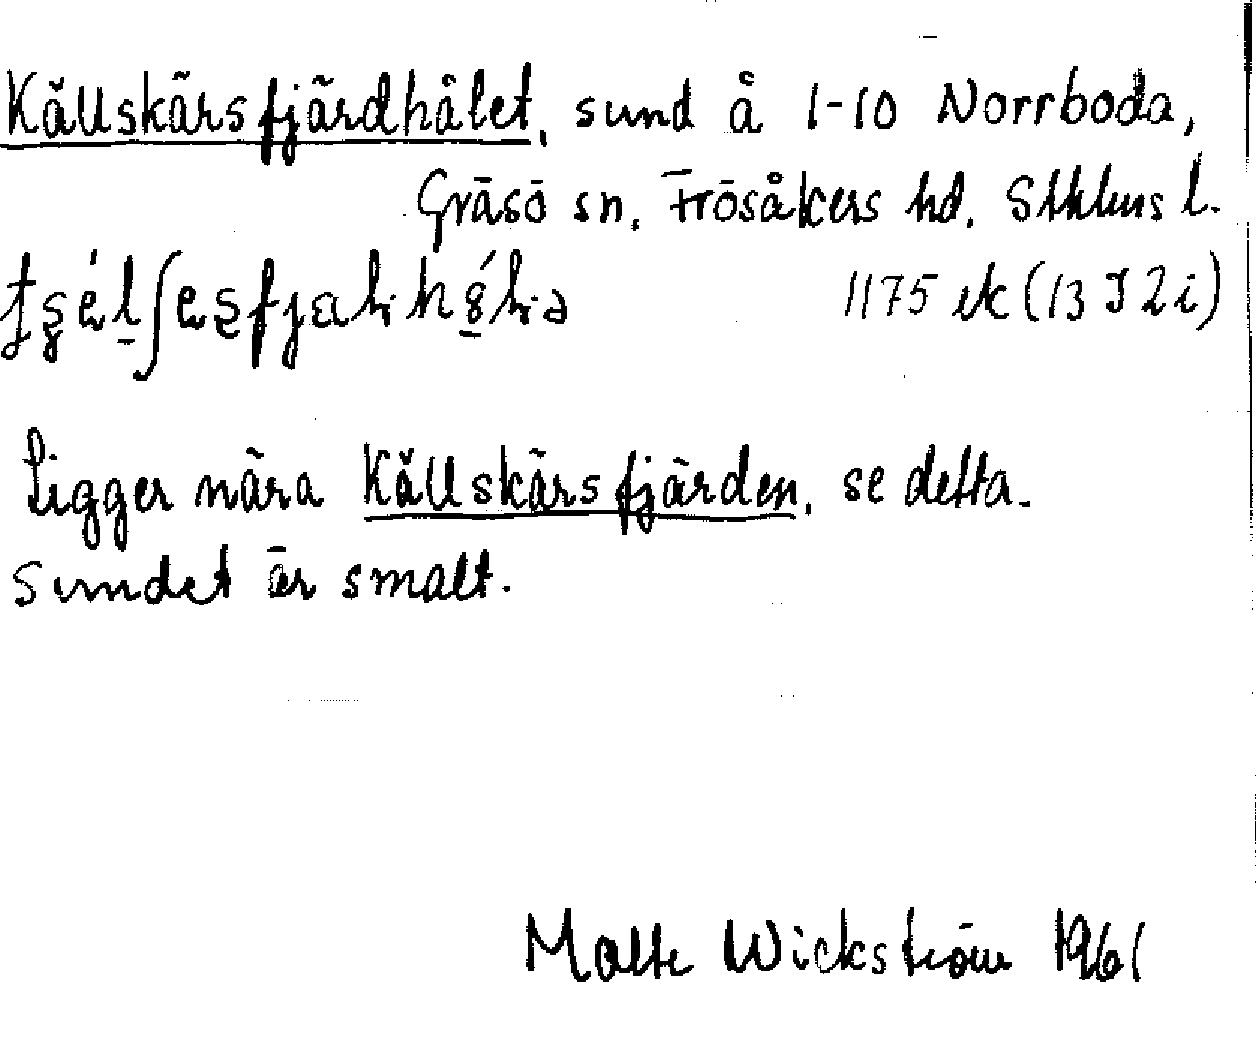 Källskärsfjärdhålet, sund å 1-10 Norrboda,
Gräsö sn. Frösåkers hd. Sthlms l.
1175 ek (13 I 2 i)
Ligger nära Källskärsfjärden, se detta.
Sundet är smalt.
Malte Wickström 1961